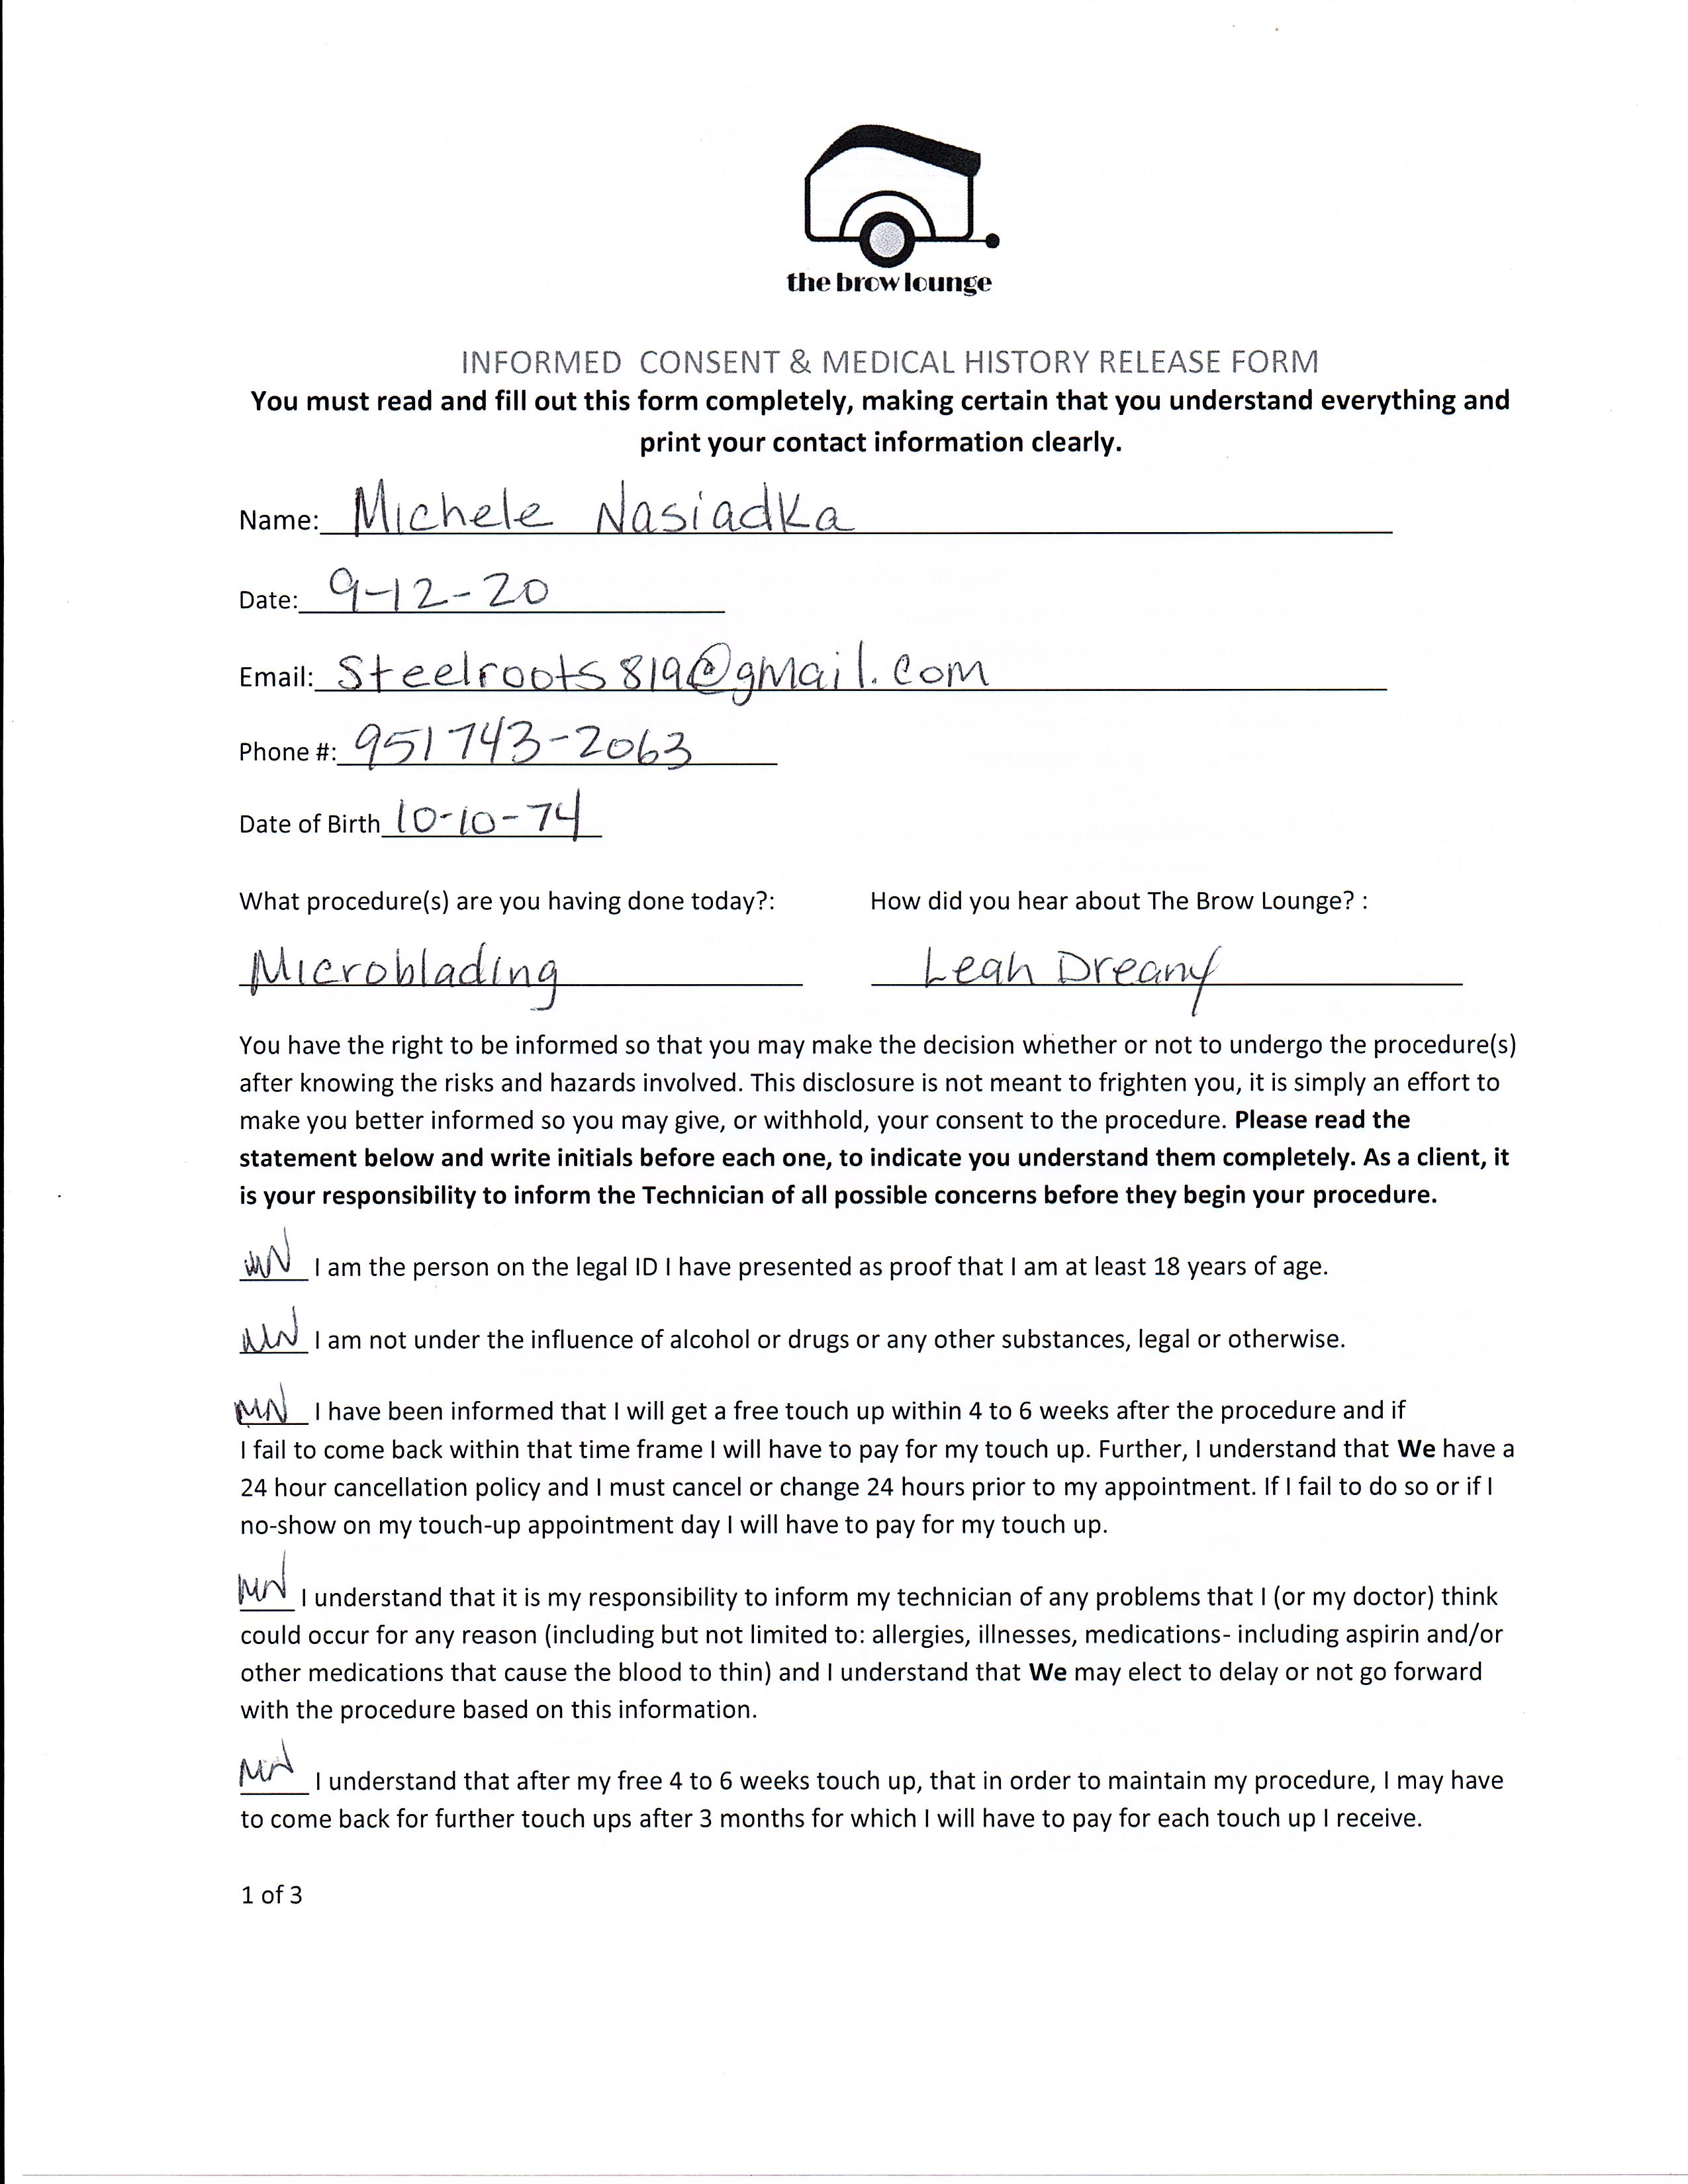 the brow lounge
INFORMED CONSENT & MEDICAL HISTORY RELEASE FORM
You must read and fill out this form completely, making certain that you understand everything and
print your contact information clearly.
Name: Michele Nasiadka
Date: 9-12-20
Email: Steelroots819@gmail.com
Phone #: 951 743-2063
Date of Birth 10-10-74
What procedure(s) are you having done today?: How did you hear about The Brow Lounge? :
Microblading Leah Dreany
You have the right to be informed so that you may make the decision whether or not to undergo the procedure(s)
after knowing the risks and hazards involved. This disclosure is not meant to frighten you, it is simply an effort to
make you better informed so you may give, or withhold, your consent to the procedure. Please read the
statement below and write initials before each one, to indicate you understand them completely. As a client, it
is your responsibility to inform the Technician of all possible concerns before they begin your procedure.
MN I am the person on the legal ID I have presented as proof that I am at least 18 years of age.
MN I am not under the influence of alcohol or drugs or any other substances, legal or otherwise.
MN I have been informed that I will get a free touch up within 4 to 6 weeks after the procedure and if
I fail to come back within that time frame I will have to pay for my touch up. Further, I understand that We have a
24 hour cancellation policy and I must cancel or change 24 hours prior to my appointment. If I fail to do so or if I
no-show on my touch-up appointment day I will have to pay for my touch up.
MN I understand that it is my responsibility to inform my technician of any problems that I (or my doctor) think
could occur for any reason (including but not limited to: allergies, illnesses, medications- including aspirin and/or
other medications that cause the blood to thin) and I understand that We may elect to delay or not go forward
with the procedure based on this information.
MN I understand that after my free 4 to 6 weeks touch up, that in order to maintain my procedure, I may have
to come back for further touch ups after 3 months for which I will have to pay for each touch up I receive.
1 of 3